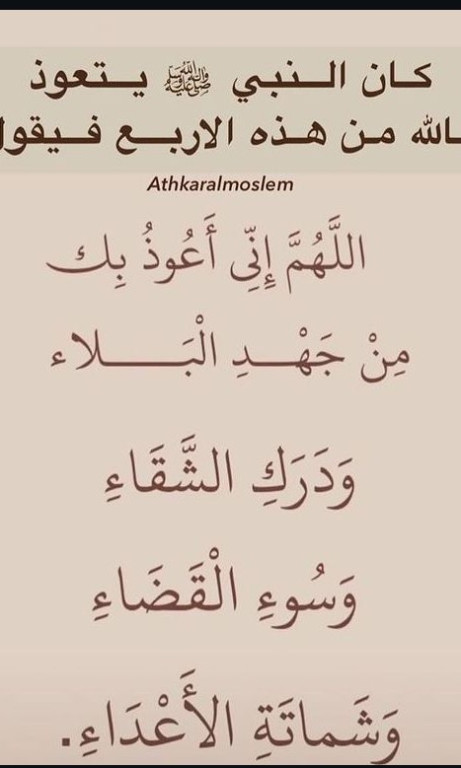 كان النبي ﷺ يتعوذ
بالله من هذه الاربع فيقول
Athkaralmoslem
اللَّهُمَّ إِنِّي أَعُوذُ بِك
مِنْ جَهْدِ الْبَلاء
وَدَرَكِ الشَّقَاءِ
وَسُوءِ الْقَضَاءِ
وَشَماتَةِ الأَعْدَاءِ.